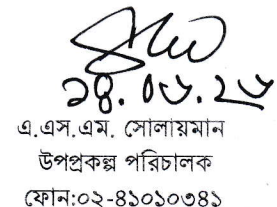 এ.এস.এম. সোলায়মান
উপপ্রকল্প পরিচালক
ফোন:০২-৪১০১০৩৪১